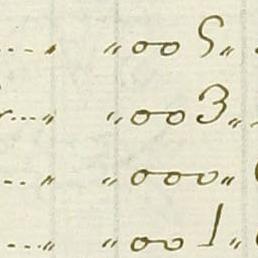 ...„ „005„
...„ „003„
...„ „000„
...„ „001„